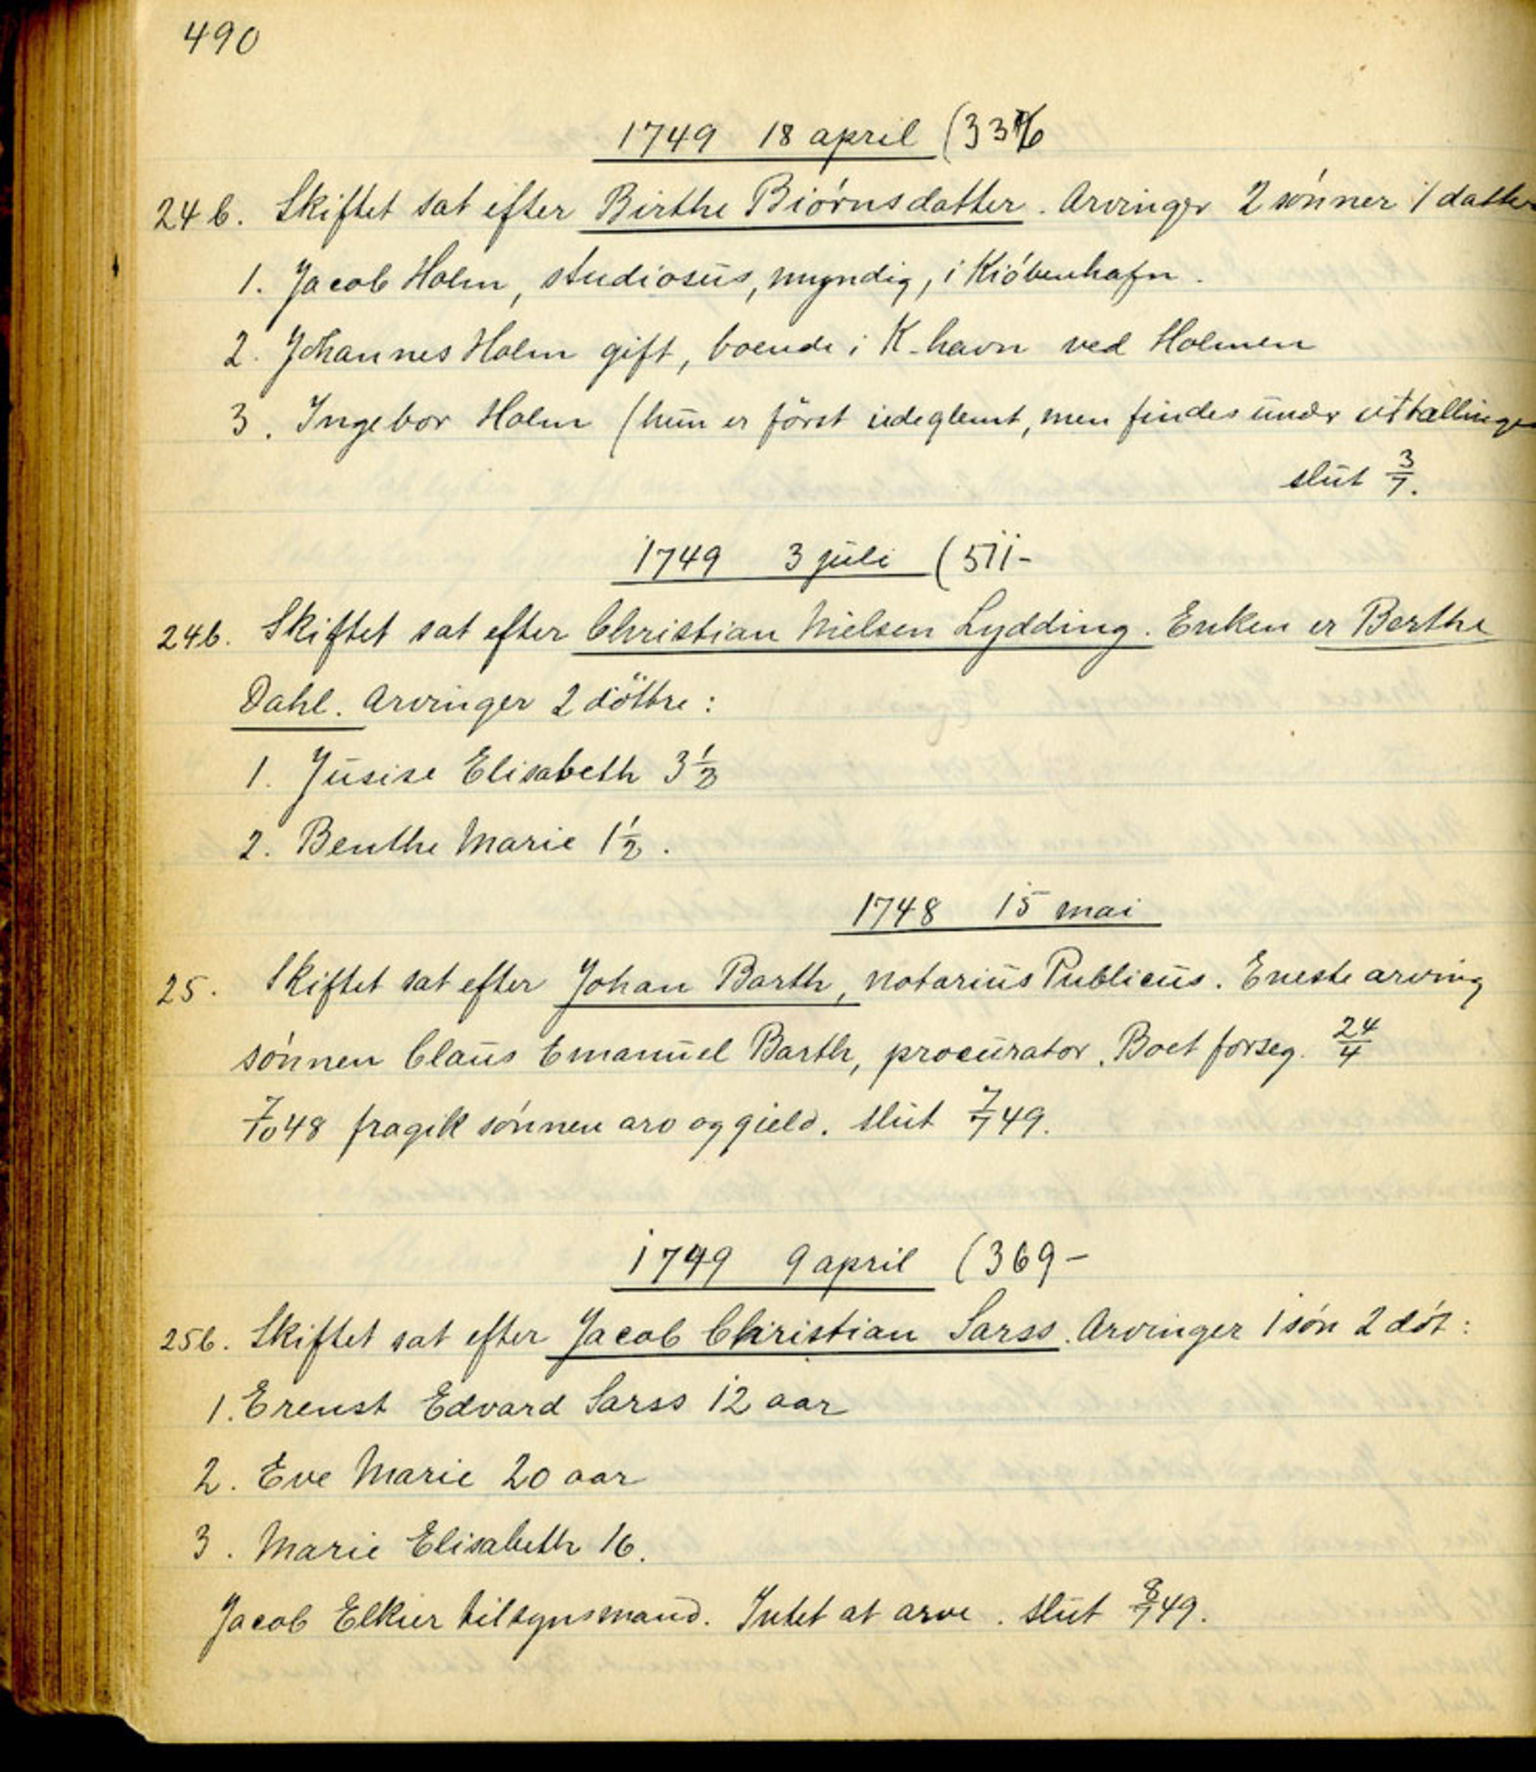 490
1749 18 april (33
24 b. Skiftet sat efter Birthe Biørnsdatter. Arvinger 2 sønner 1 datter
1. Jacob Holm, studiosus, myndig, i Kiøbenhafn.
2. Johannes Holm gift, boende i K-havn ved Holmen
3. Ingebor Holm (hun er först udeglemt, men findes under uttællingen
slut 3/7.
1749 3 juli (511-
24b. Skiftet sat efter Christian Nielsen Lydding. Enken er Berthe
Dahl. Arvinger 2 döttre:
1. Jusise Elisabeth 3 1/2
2. Benthe Marie 1 1/2.
1748 15 mai
25. Skiftet sat efter Johan Barth, notarius Publicus. Eneste arving
sønnen Claus Emanuel Barth, procurator. Boet forseg. 24/4
7/10 48 fragik sønnen arv og gield. slut 7/7 49.
1749 9 april (369-
25b. Skiftet sat efter Jacob Christian Sarss. Arvinger 1 søn 2 døt:
1. Erenst Edvard Sarss 12 aar
2. Eve Marie 20 aar
3. Marie Elisabeth 16.
Jacob Elkier tilsynsmand. Intet at arve. slut 8/7 49.